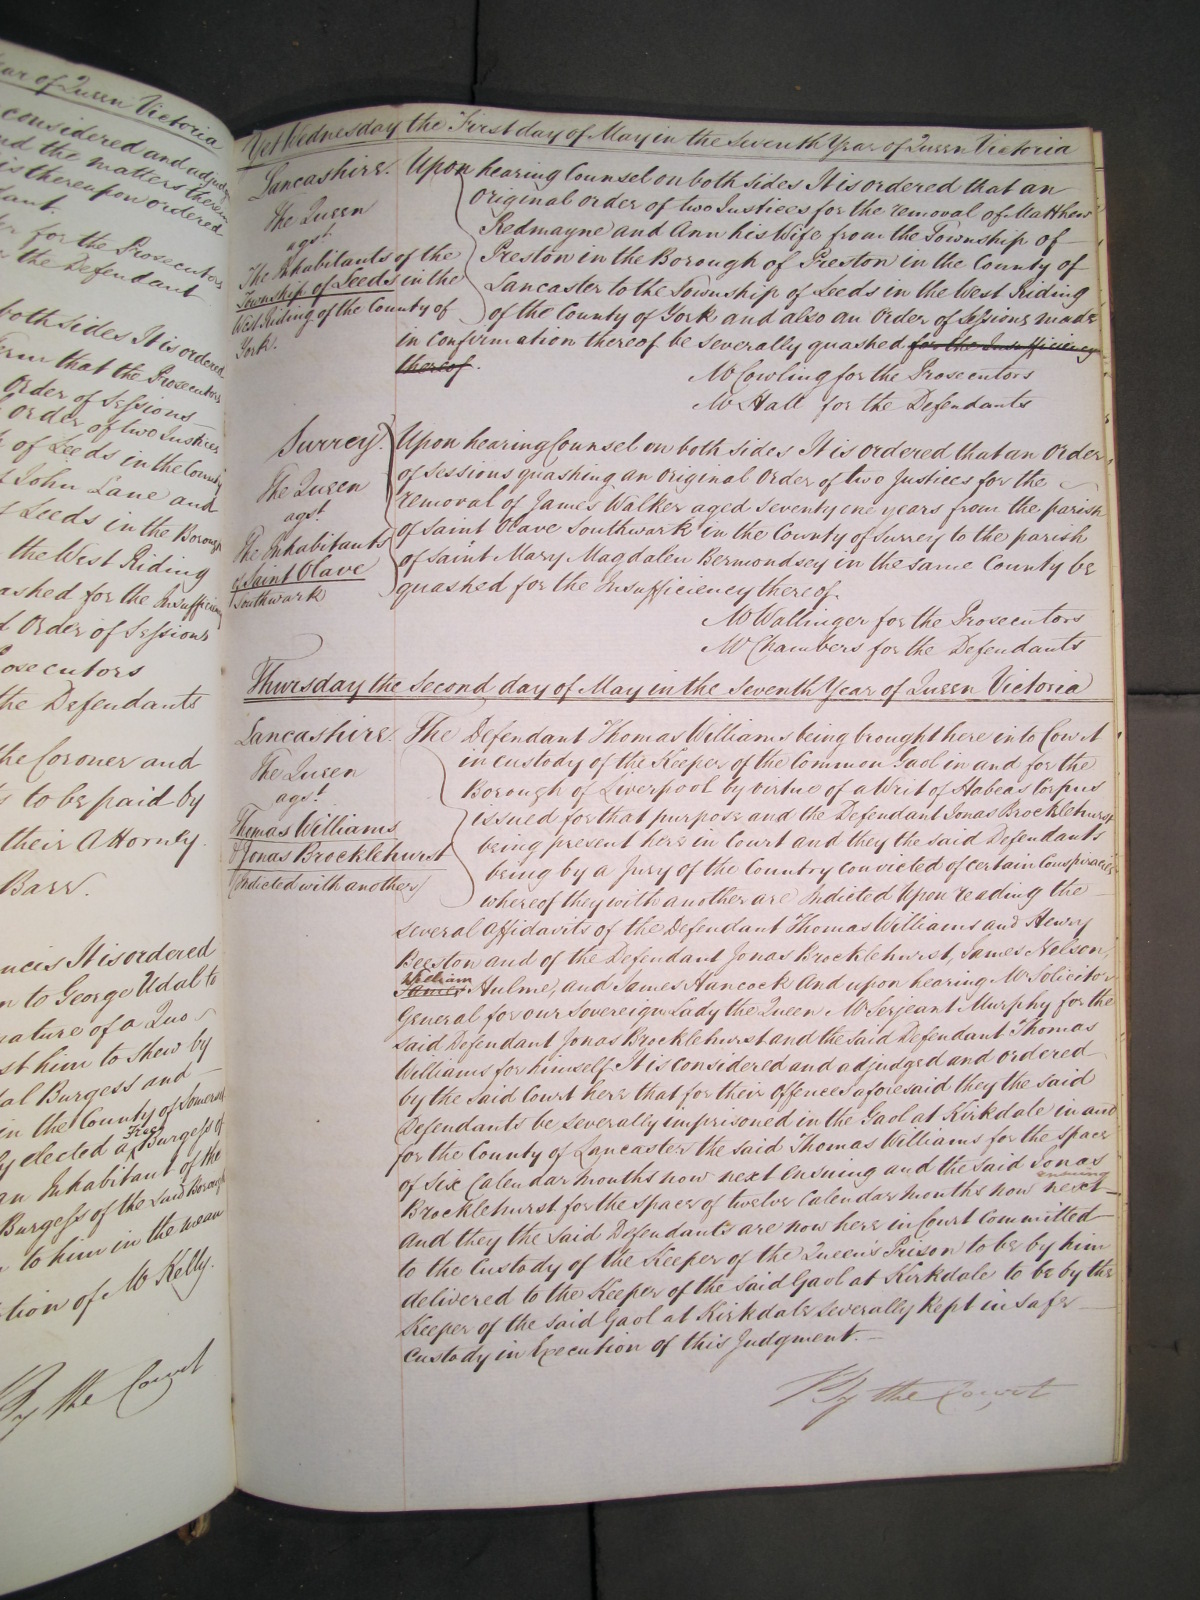 ear of Queen Victoria
considered and adjudg
nd the matters therein
is thereupon ordered
dant.
for the Prosecutors
the Defendant
both sides It is ordered
that the Prosecutors
Order of Sessions
Order of two Justices
of Leeds in the County
John Lane and
Leeds in the Borough
the West Riding
ashed for the Insufficiency
Order of Sessions
osecutors
the Defendants
the Coroner and
to be paid by
their Attorney.
Barr.
It is ordered
to George Udal to
nature of a Quo
st him to shew by
al Burgess and
in the County of Somerset
ly elected a Free Burgess of
an Inhabitant of the
Burgess of the said Borough
to him in the mean
tion of Mr Kelly.
By the Court
Yet Wednesday the First day of May in the Seventh Year of Queen Victoria
Lancashire.
The Queen
agst.
The Inhabitants of the
Township of Leeds in the
West Riding of the County of
York.
Upon hearing Counsel on both sides It is ordered that an
Original Order of two Justices for the removal of Matthew
Redmayne and Ann his Wife from the Township of
Preston in the Borough of Preston in the County of
Lancaster to the Township of Leeds in the West Riding
of the County of York and also an Order of Sessions made
in confirmation thereof be severally quashed for the Insufficiency
thereof.
Mr Cowling for the Prosecutors
Mr Hall for the Defendants
Surrey.
The Queen
agst.
The Inhabitants
of Saint Olave
Southwark
Upon hearing Counsel on both sides It is ordered that an Order
of Sessions quashing an Original Order of two Justices for the
removal of James Walker aged seventy one years from the parish
of Saint Olave Southwark in the County of Surrey to the parish
of Saint Mary Magdalen Bermondsey in the same County be
quashed for the Insufficiency thereof.
Mr Wallinger for the Prosecutors
Mr Chambers for the Defendants
Thursday the Second day of May in the Seventh Year of Queen Victoria
Lancashire.
The Queen
agst.
Thomas Williams
& Jonas Brocklehurst
(Indicted with another)
The Defendant Thomas Williams being brought here into Court
in custody of the Keeper of the Common Gaol in and for the
Borough of Liverpool by virtue of a Writ of Habeas Corpus
issued for that purpose and the Defendant Jonas Brocklehurst
being present here in Court and they the said Defendants
being by a Jury of the Country convicted of certain Conspiracies
whereof they with another are Indicted Upon reading the
several affidavits of the Defendant Thomas Williams and Henry
Beeston and of the Defendant Jonas Brocklehurst, James Nelson,
William
James Hulme, and James Hancock And upon hearing Mr Solicitor
General for our Sovereign Lady the Queen Mr Serjeant Murphy for the
said Defendant Jonas Brocklehurst and the said Defendant Thomas
Williams for himself It is considered and adjudged and ordered
by the said Court here that for their Offences aforesaid they the said
Defendants be severally imprisoned in the Gaol at Kirkdale in and
for the County of Lancaster the said Thomas Williams for the space
of six Calendar months now next ensuing and the said Jonas
ensuing
Brocklehurst for the space of twelve Calendar months now next
And they the said Defendants are now here in Court Committed
to the Custody of the Keeper of the Queen's Prison to be by him
delivered to the Keeper of the said Gaol at Kirkdale to be by the
Keeper of the said Gaol at Kirkdale severally kept in safe
Custody in Execution of this Judgment.
By the Court